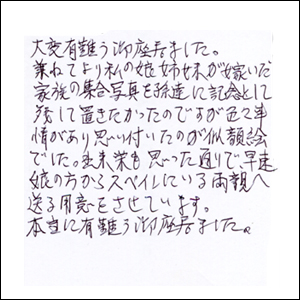 大変有難う御座居ました。
兼ねてより私の娘姉妹が嫁いだ
家族の集合写真を孫達に記念として
残して置きたかったのですが色々事
情があり思い付いたのが似顔絵
でした。出来栄も思った通りで、早速
娘の方からスペインにいる両親へ
送る用意をさせています。
本当に有難う御座居ました。